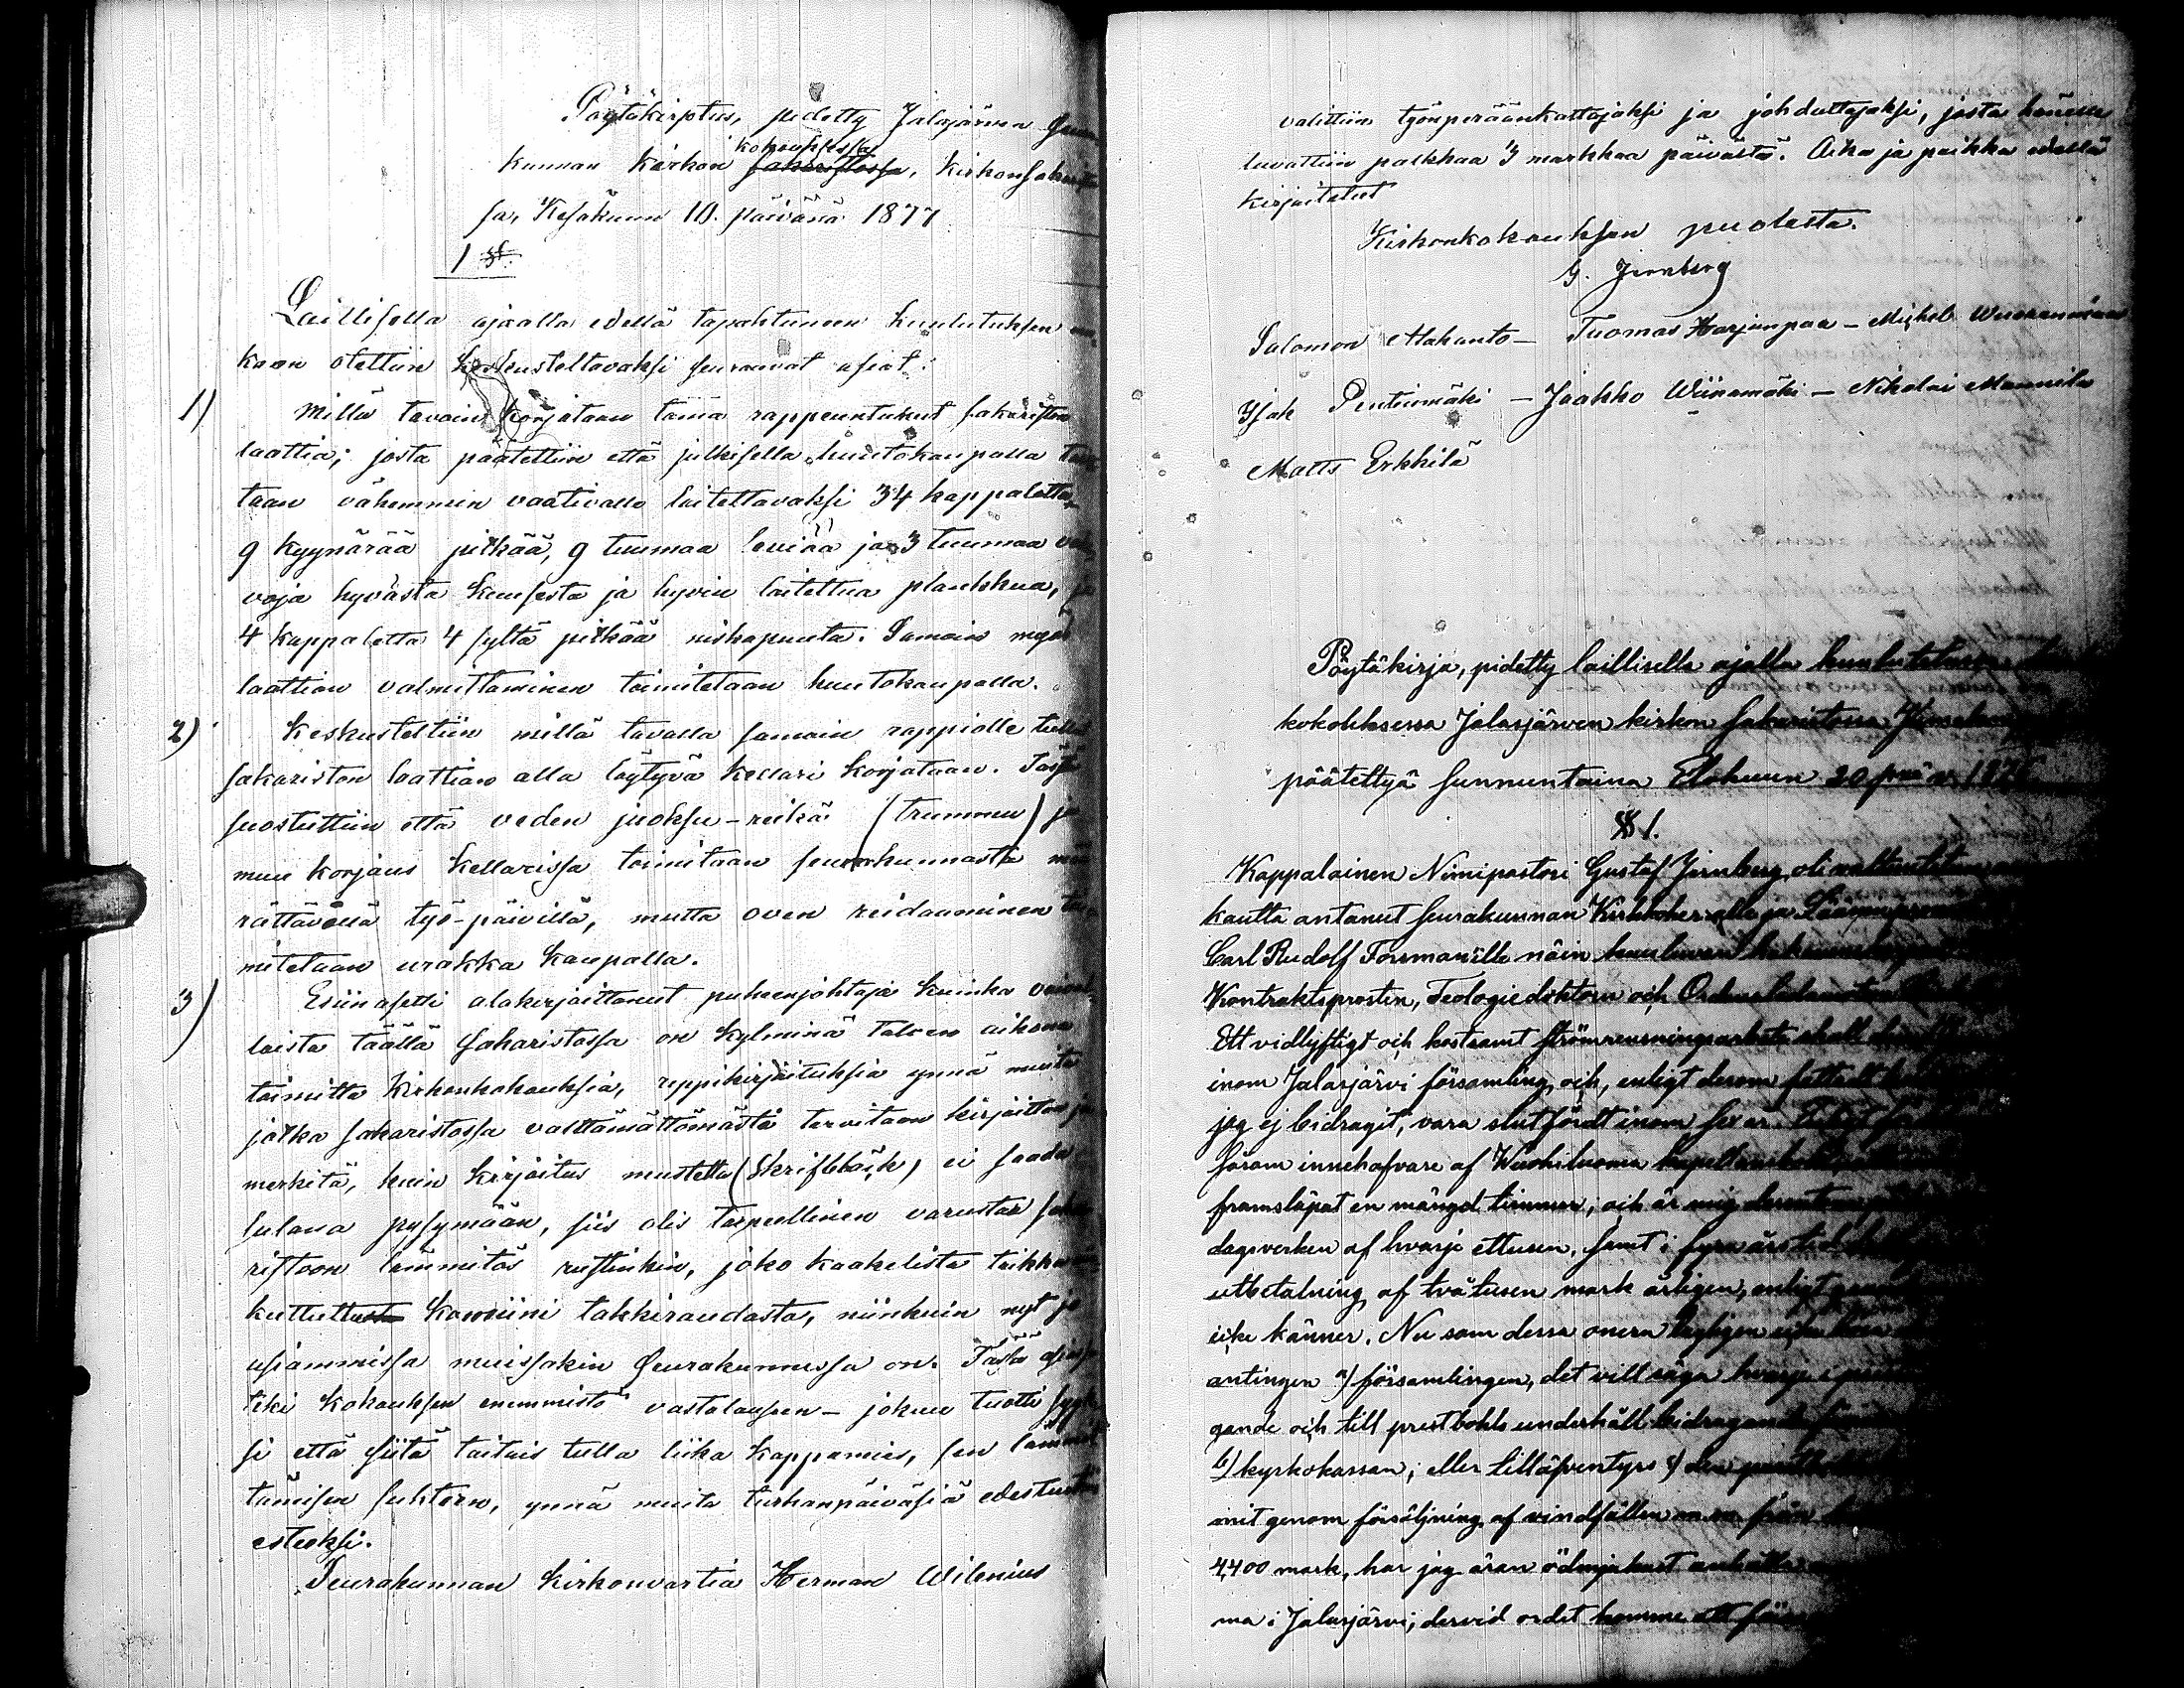 Pöytäkirjoitus, pidetty Jalasjärven Seura
kunnan kirkon kokouksessa sakaristossa, kirkonsakaris
sa, Kesäkuun 10. päivänä 1877
1 §.
Laillisella ajaalla edellä tapahtuneen kuulutuksen
kaan otettiin keskusteltavaksi seuraavat asiat:
1) Millä tavoin korjataan tämä rappeuntunut sakariston
laattia; josta päätettiin että julkisella huutokaupalla
taan vähemmin vaativalle laitettavaksi 34 kappaletta
9 kyynärää pitkää, 9 tuumaa leviää ja 3 tuumaa vah
voja hyvästä kuusesta ja hyvin laitettua plankkua, ja
4 kappaletta 4 syltä pitkää niskapuuta. Samoin myös
laattian valmistaminen toimitetaan huutokaupalla.
2) Keskusteltiin millä tavalla samoin rappiolle tullut
sakariston laattian alla löytyvä kellari korjataan. Tässä
suostuttiin että veden juoksu-reikä (trummu) ja
muu korjaus kellarissa toimitaan seurakunnasta mää
rättävällä työ-päivillä, mutta oven reidaaminen toi
mitetaan urakka kaupalla.
3) Esiin asetti alakirjoittanut puheenjohtaja kuinka vaival
loista täällä Sakaristossa on kylminä talven aikoina
toimitta kirkonkokouksia, rippikirjoituksia ynnä muita
jotka sakaristossa välttämättömästä tarvitaan kirjoittaa ja
merkitä, kuin kirjoitus mustetta (Skrifbläck) ei saada
sulana pysymään, siis olis tarpeellinen varustaa saka
ristoon lämmitös rustinkin, joko kaakelista taikka
kuttuttusta kamiini takkiraudasta, niinkuin nyt jo
usiammissa muissakin Seurakunnissa on. Tästä asiasta
teki kokouksen enemmistö vastalauseen - jokuu tuotti syyk
si että siitä taitais tulla liika kappamies, sen lämmit
tämisen suhteen, ynnä muita turhanpäiväsiä edestuotin
esteeksi.
Seurakunnan kirkonvartia Herman Wilenius
valittiin työnperäänkattajaksi ja johduttajaksi, josta hänelle
luvattiin palkkaa 3 markkaa päivästä. Aika ja paikka edellä
kirjoitetut
Kirkonkokouksen puolesta.
G. Jernberg
Salomon Alahanto - Tuomas Harjunpaa - Michel Wuorenmaa
Isak Penttinmäki - Jaakko Wiinamäki - Nikolai Mannila
Matts Erkkilä
Pöytäkirja, pidetty laillisella ajalla kuulutetussa
kokouksessa Jalasjärven kirkon sakaristossa
päätettyä sunnuntaina Elokuun 20 päiv.
§ 1.
Kappalainen Nimipastori Gustaf Jernberg oli
kautta antanut seurakunnan Kirkkoherralle ja
Carl Rudolf Forsmanille näin kuuluvan
Kontraktsprosten, Teologiedoktorn och Ordensledamoten
Ett vidlyftigt och kostsamt strömrensningsarbete skall
inom Jalasjärvi församling, och, enligt derom fattadt
jag ej bidragit, vara slutfördt inom sex år.
såsom innehafvare af
framsläpat en mängd timmer, och är mig
dagsverken af hvarje ettusen, samt i fyra års tid
utbetalning af tvåtusen mark årligen, enligt
icke känner. Nu som dessa onera
antingen a) församlingen, det vill säga hvarje
gande och till prestbohls underhåll bidragande
b) kyrkokassan; eller tilläfventyrs c) den
mit genom försäljning af vindfällen m.m. från
4,400 mark, har jag äran ödmjukast anhålla
ma i Jalasjärvi; dervid ordet komme att